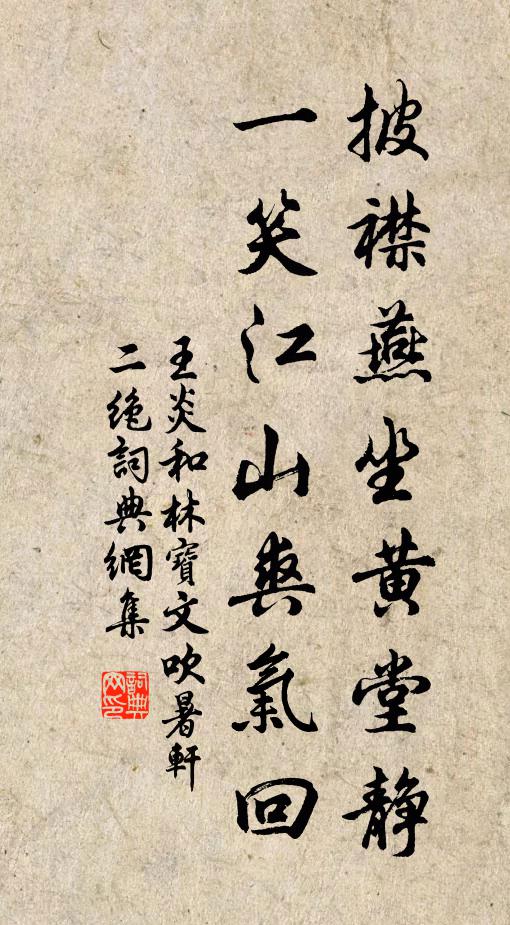 披襟燕坐黄堂静
一笑江山爽氣回
王炎和林寶文吹暑軒
二絶詞典網集
詞典網印